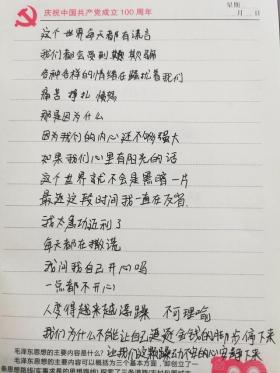 庆祝中国共产党成立100周年
星期
月 日
这个世界每天都有谎言
我们都会受到欺骗
各种各样的情绪在骚扰着我们
痛苦 挣扎 愤怒
那是因为什么
因为我们的内心还不够强大
如果我们心里有阳光的话
这个世界就不会是黑暗一片
最近这段时间我一直在反省
我太急功近利了
每天都在撒谎
我问我自己开心吗
一点都不开心
人变得越来越浮躁 不可理喻
我们为什么不能让自己追逐金钱的脚步停下来
让我们这颗躁动不安的心安静下来
毛泽东思想的主要内容是什么?
毛泽东思想的主要内容可以概括为三个基本方面,即创立了一